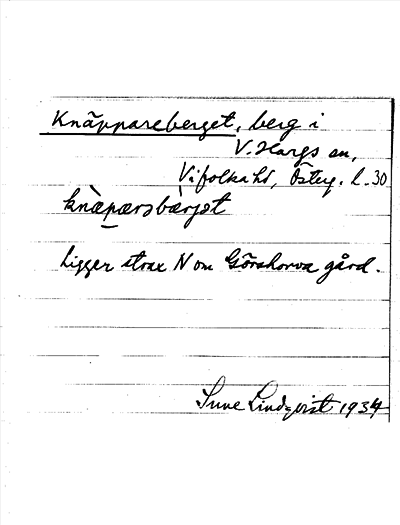 Knäppareberget, berg i
V. Hargs sn,
Vifolka hd, Österg. l. 30
knæ̀pærəbærjət
Ligger strax N om Görshorva gård.
Sune Lindqvist 1934